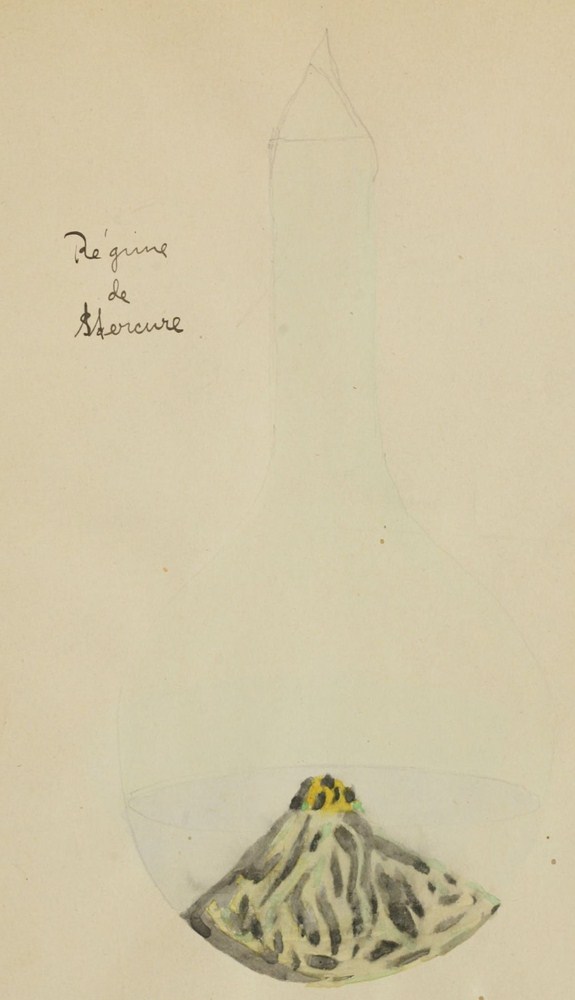 Régime
de
Mercure